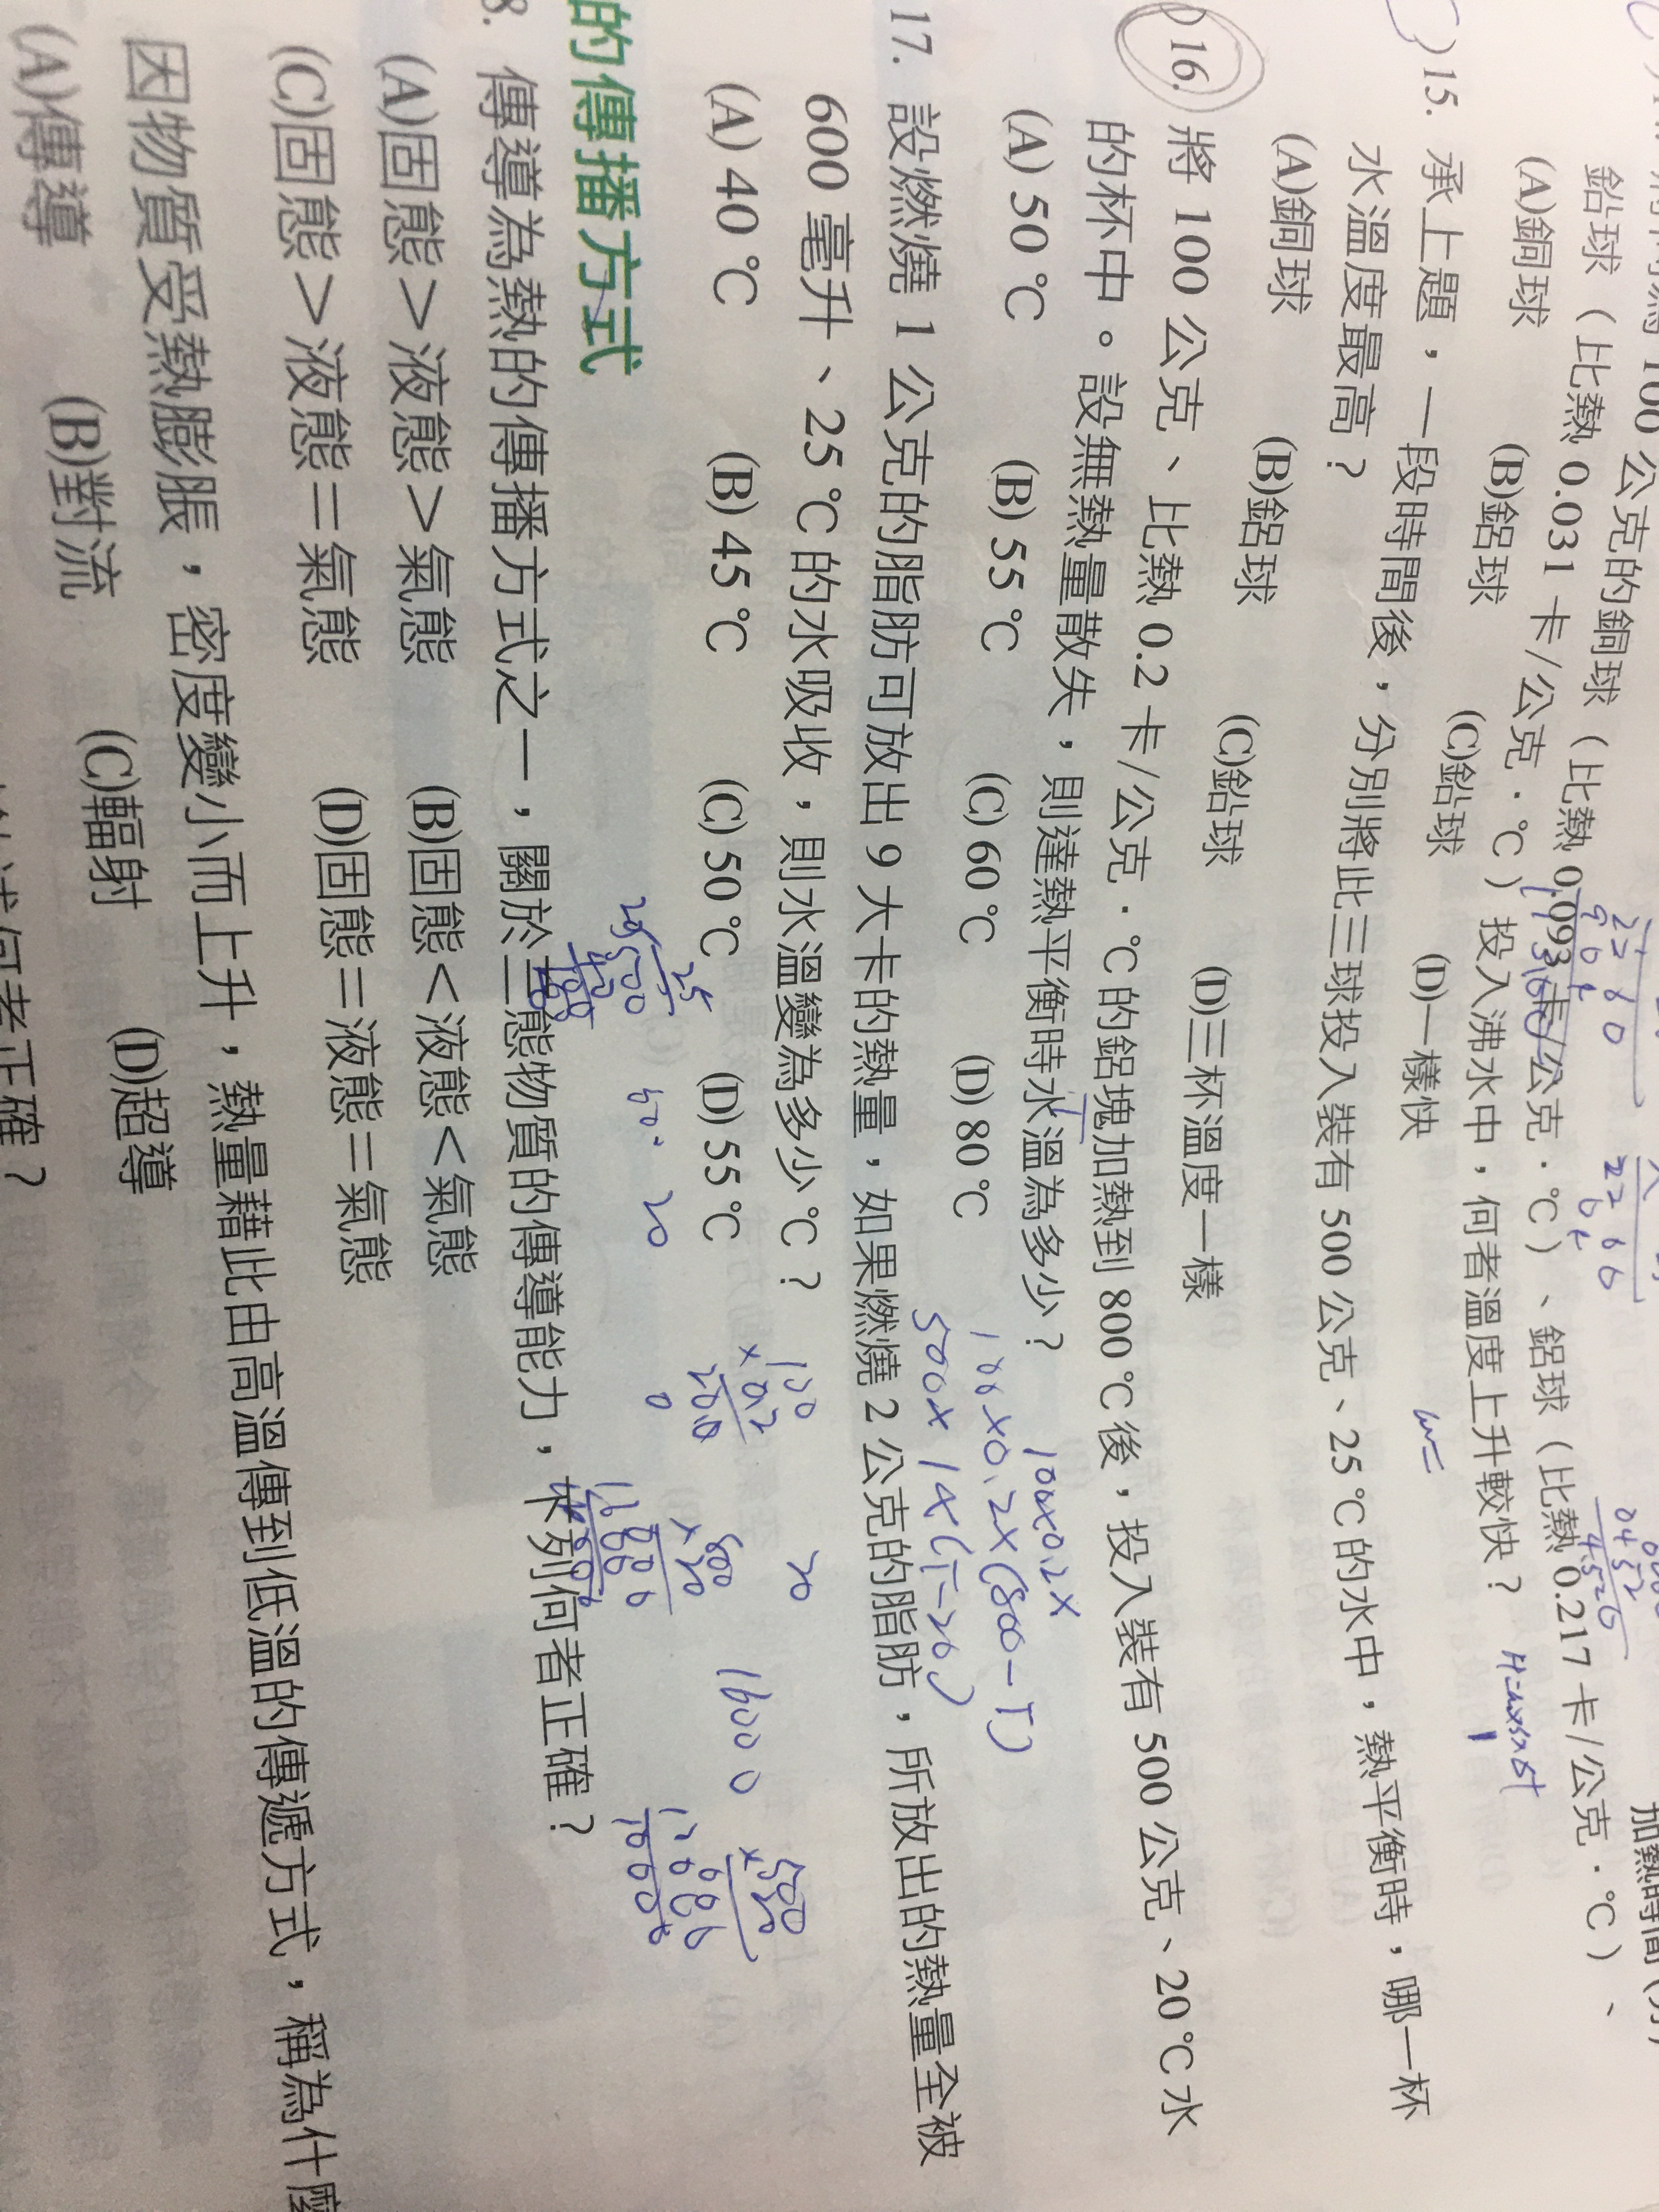 100 公克的銅球（比熱 0.093 卡/公克．℃）、鋁球（比熱 0.217 卡/公克．℃）、
鉛球（比熱 0.031 卡/公克．℃）投入沸水中，何者溫度上升較快？
(A)銅球 (B)鋁球 (C)鉛球 (D)一樣快
)15. 承上題，一段時間後，分別將此三球投入裝有 500 公克、25 ℃的水中，熱平衡時，哪一杯
水溫度最高？
(A)銅球 (B)鋁球 (C)鉛球 (D)三杯溫度一樣
)16. 將 100 公克、比熱 0.2 卡/公克．℃的鋁塊加熱到 800 ℃後，投入裝有 500 公克、20 ℃水
的杯中。設無熱量散失，則達熱平衡時水溫為多少？
(A) 50 ℃ (B) 55 ℃ (C) 60 ℃ (D) 80 ℃
100x0.2x
100x0.2x(800-T)
500x1x(T-20)
17. 設燃燒 1 公克的脂肪可放出 9 大卡的熱量，如果燃燒 2 公克的脂肪，所放出的熱量全被
600 毫升、25 ℃的水吸收，則水溫變為多少℃？
(A) 40 ℃ (B) 45 ℃ (C) 50 ℃ (D) 55 ℃
20
16000
的傳播方式
8. 傳導為熱的傳播方式之一，關於三態物質的傳導能力，下列何者正確？
(A)固態＞液態＞氣態 (B)固態＜液態＜氣態
(C)固態＞液態＝氣態 (D)固態＝液態＝氣態
因物質受熱膨脹，密度變小而上升，熱量藉此由高溫傳到低溫的傳遞方式，稱為什麼
(A)傳導 (B)對流 (C)輻射 (D)超導
何者正確？